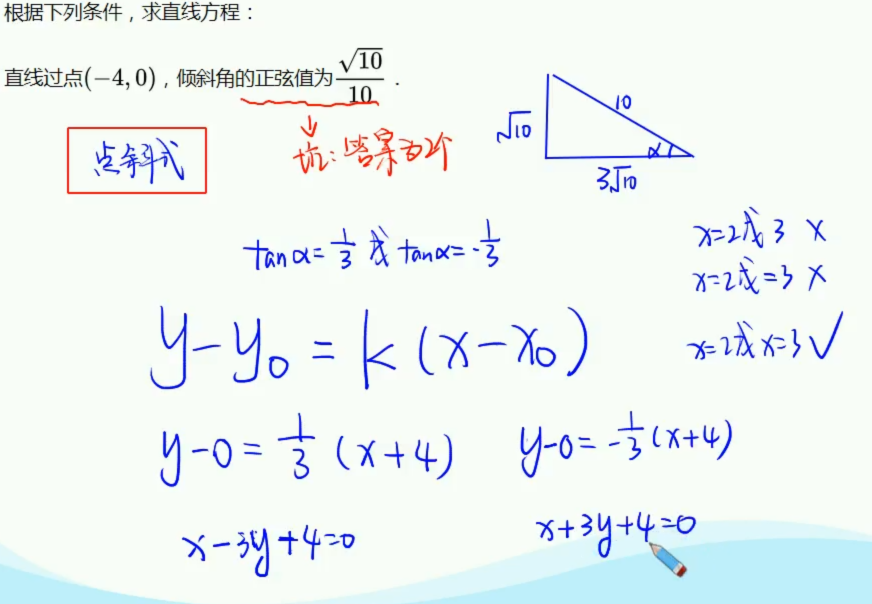 根据下列条件，求直线方程：
直线过点(−4, 0)，倾斜角的正弦值为√10/10．
点斜式
坑：答案为2个
√10
10
α
3√10
tanα=1/3 或 tanα=-1/3
x=2或3 ×
x=2或=3 ×
x=2或x=3 ✓
y-y₀=k(x-x₀)
y-0=1/3(x+4)
y-0=-1/3(x+4)
x-3y+4=0
x+3y+4=0